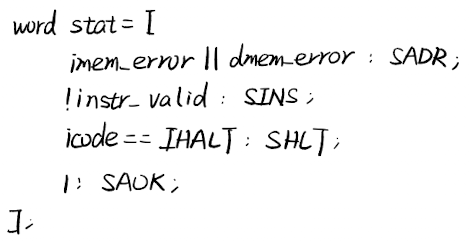 word stat = [
imem_error || dmem_error : SADR;
!instr_valid : SINS;
icode == IHALT : SHLT;
1: SAOK;
];